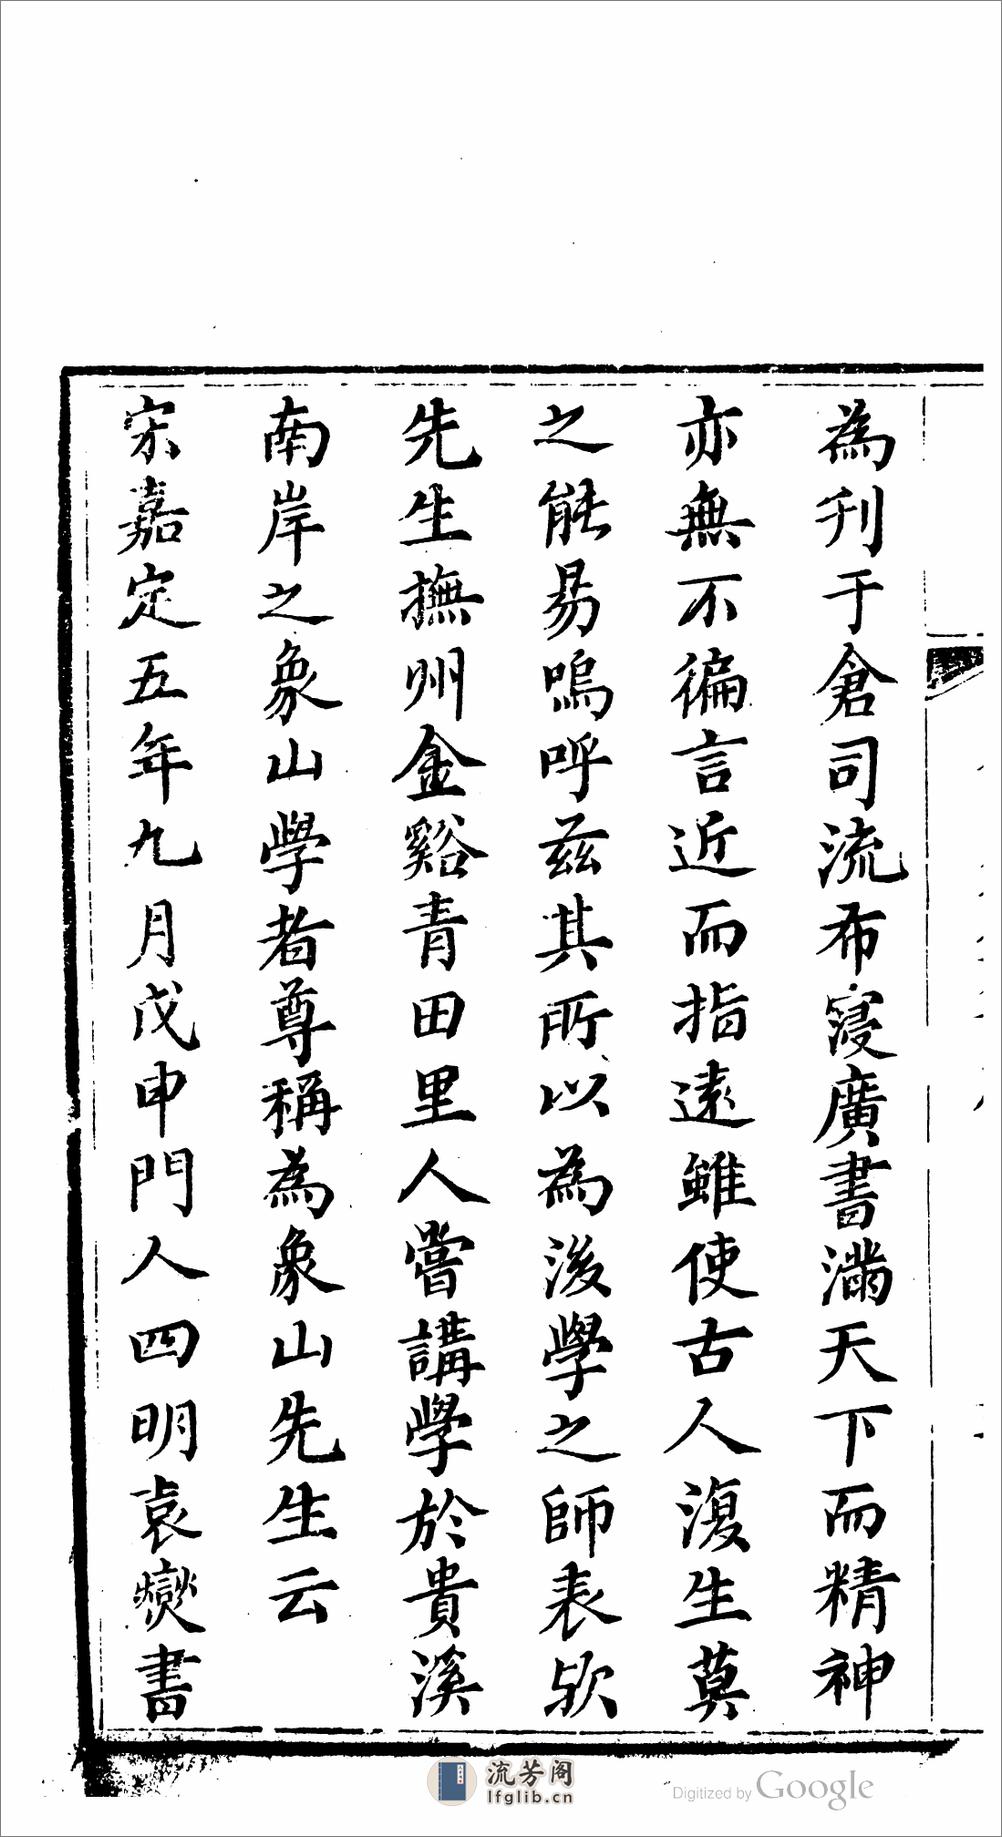 為刊于倉司流布寖廣書滿天下而精神
亦無不徧言近而指遠雖使古人復生莫
之能易嗚呼兹其所以為後學之師表歟
先生撫州金谿青田里人嘗講學於貴溪
南岸之象山學者尊稱為象山先生云
宋嘉定五年九月戊申門人四明袁燮書
流芳阁
lfglib.cn
Digitized by Google